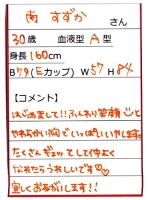 南 すずか さん
30歳 血液型 A型
身長 160cm
B79(Eカップ) W57 H84
【コメント】
はじめまして!!ふんわり笑顔♡と
やわらかい胸でいっぱいいやします。
たくさんギュッとして仲よく
なれたらうれしいです♡
宜しくおねがいします!!